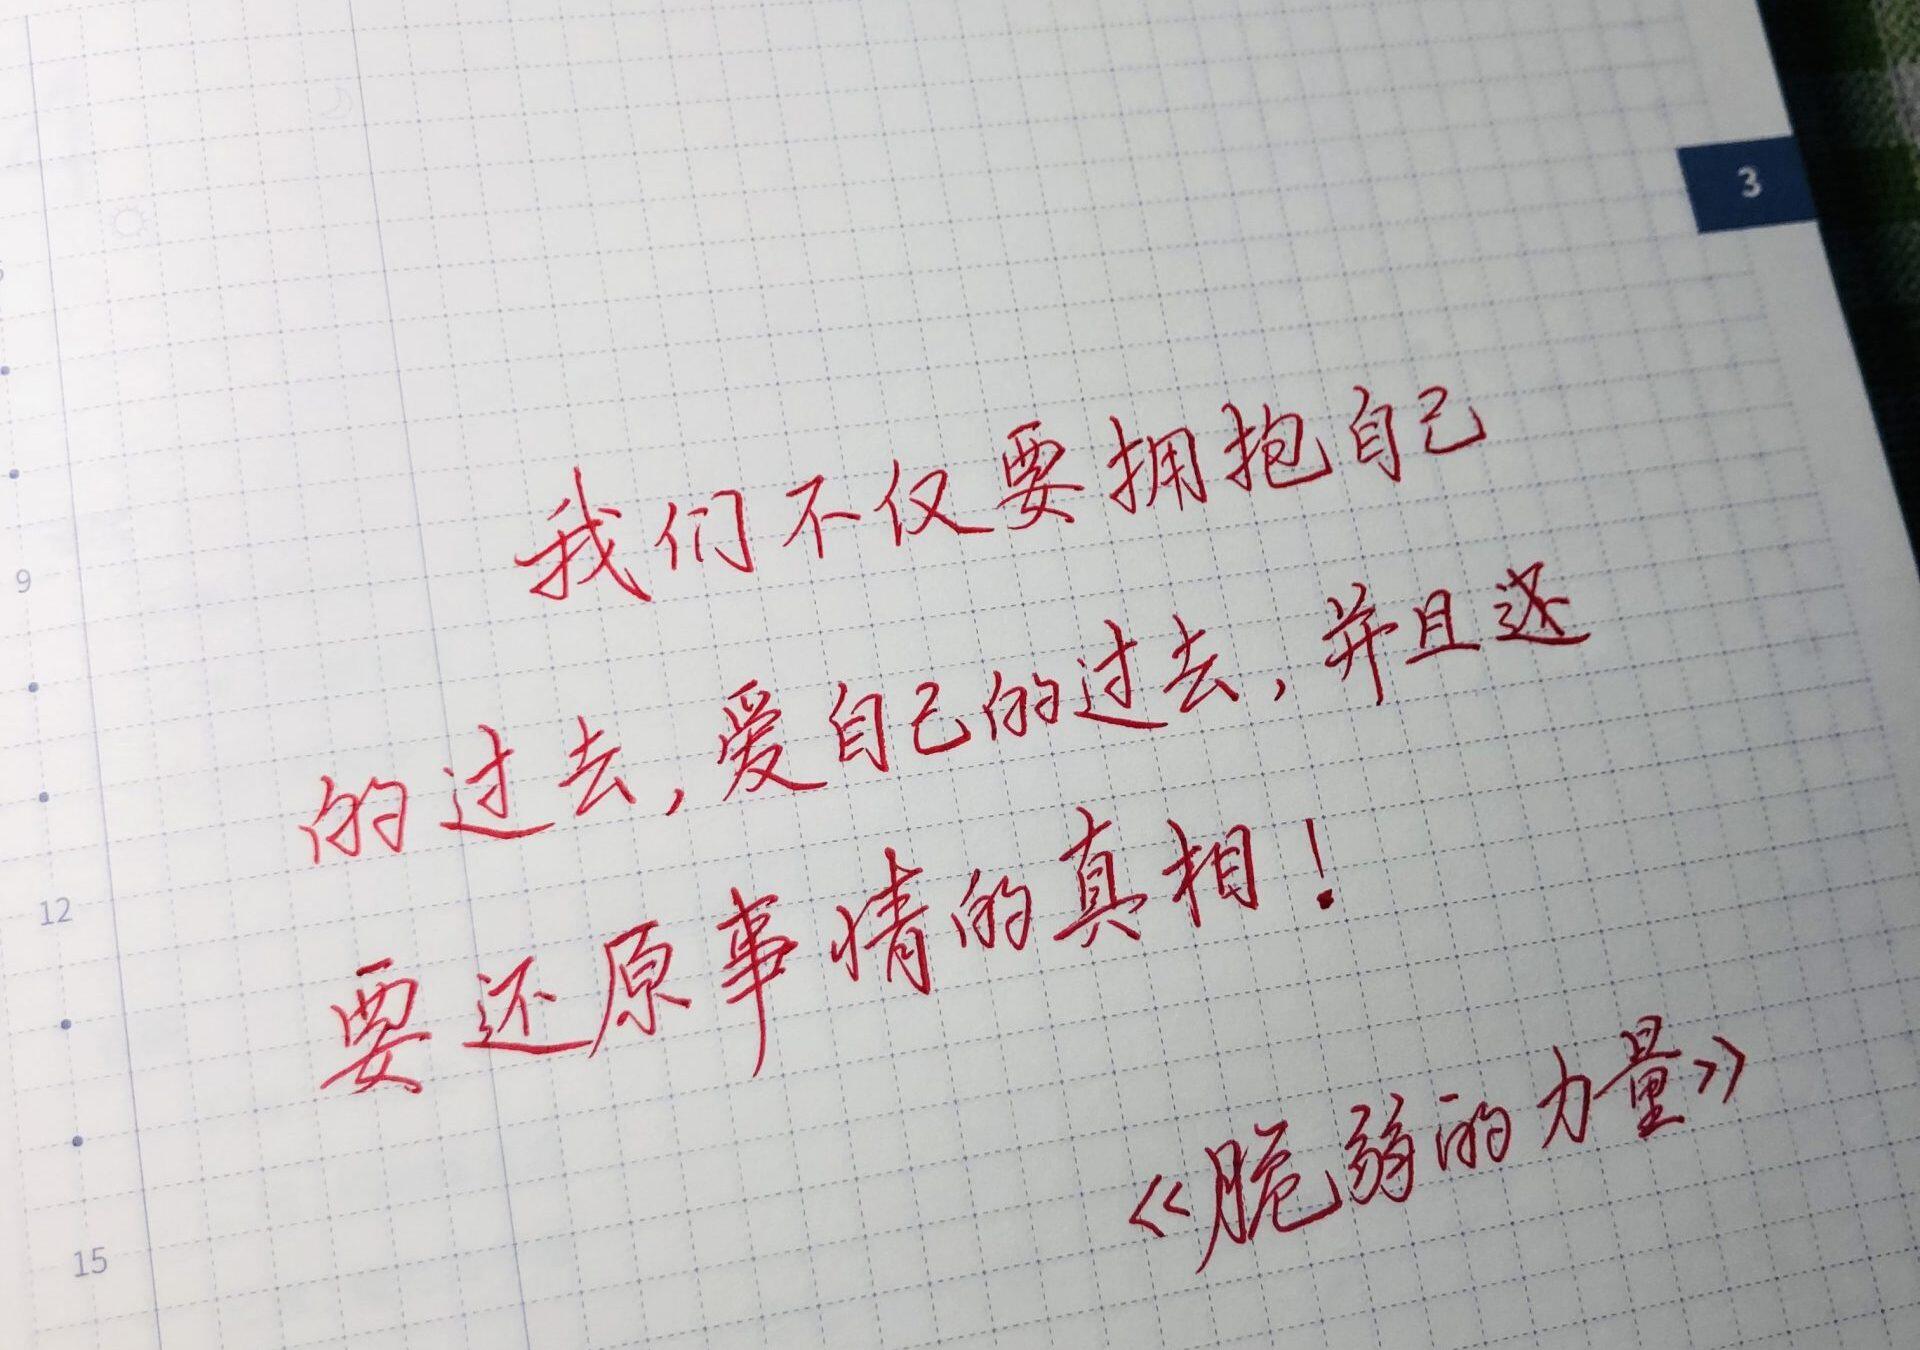 3
我们不仅要拥抱自己
的过去,爱自己的过去,并且还
要还原事情的真相!
《脆弱的力量》
9
12
15